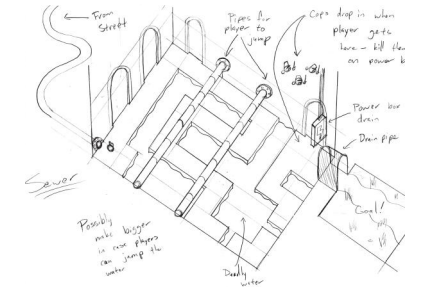 From
Street
Pipes for
player to
jump
Cops drop in when
player gets
here - kill them
on power b
Power box
drain
Drain pipe
Goal!
Sewer
Possibly
make bigger
in case players
can jump the
water
Deadly
water